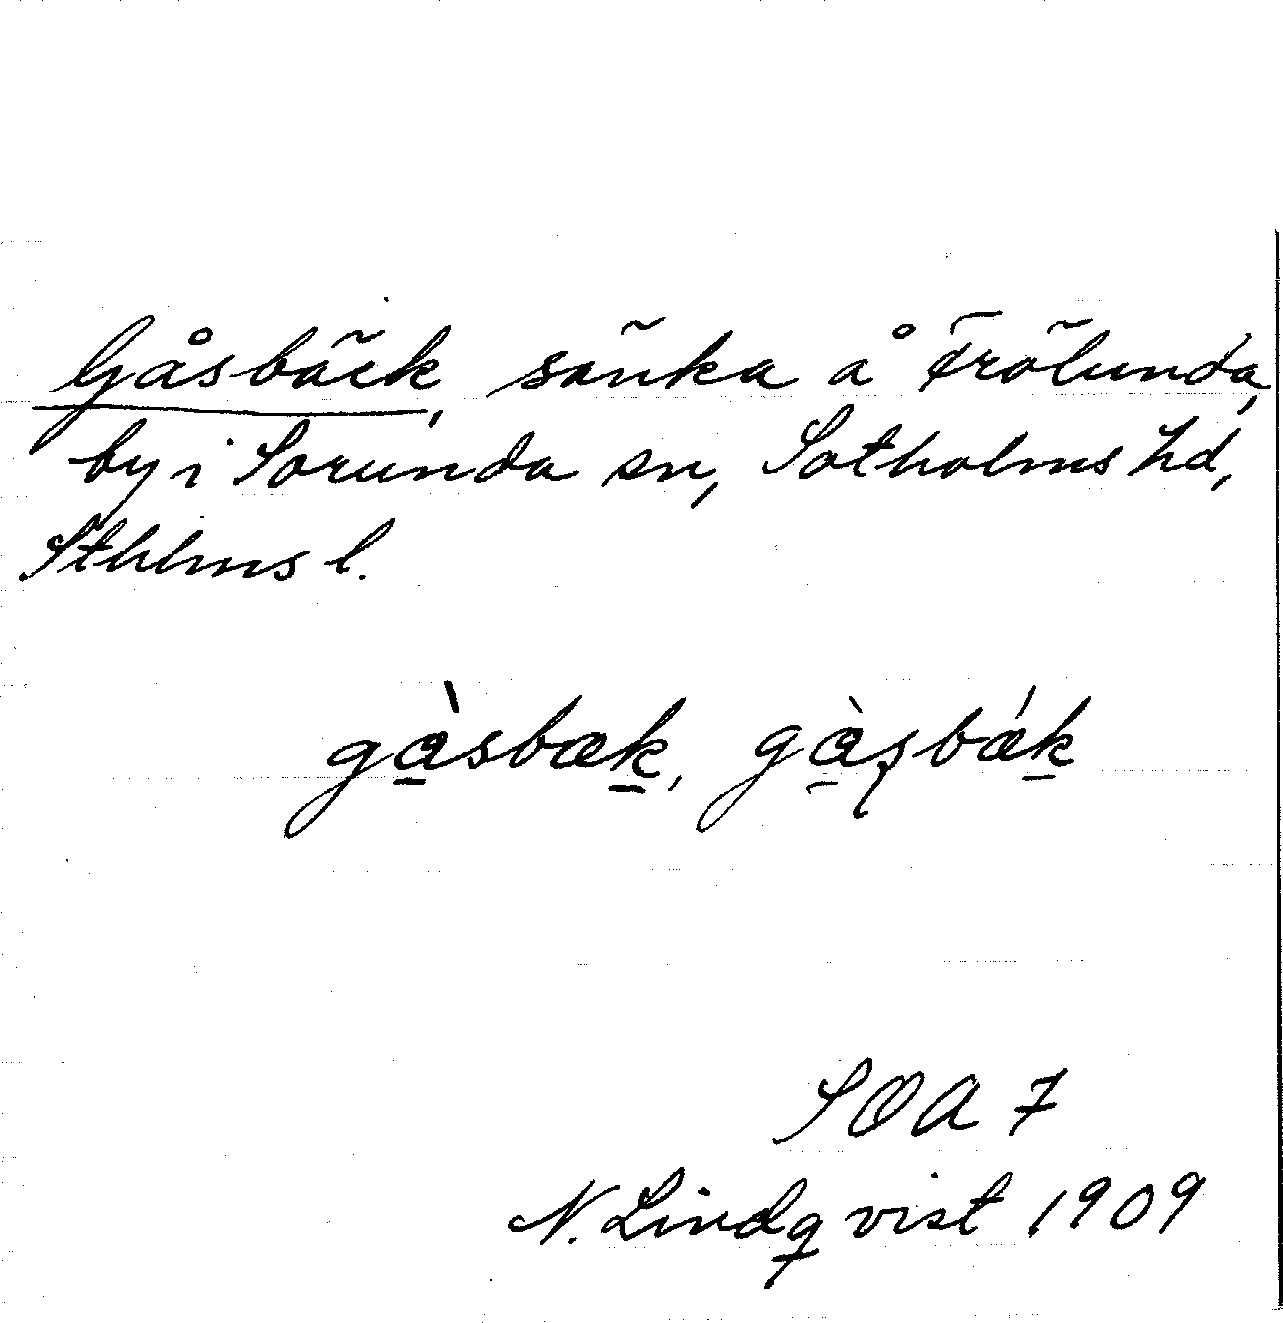 Gåsbäck, sänka å Frölunda,
by i Sorunda sn, Sotholms hd,
Sthlms l.
gàsbæk, gàsbǽk
SOA 7
N. Lindqvist 1909